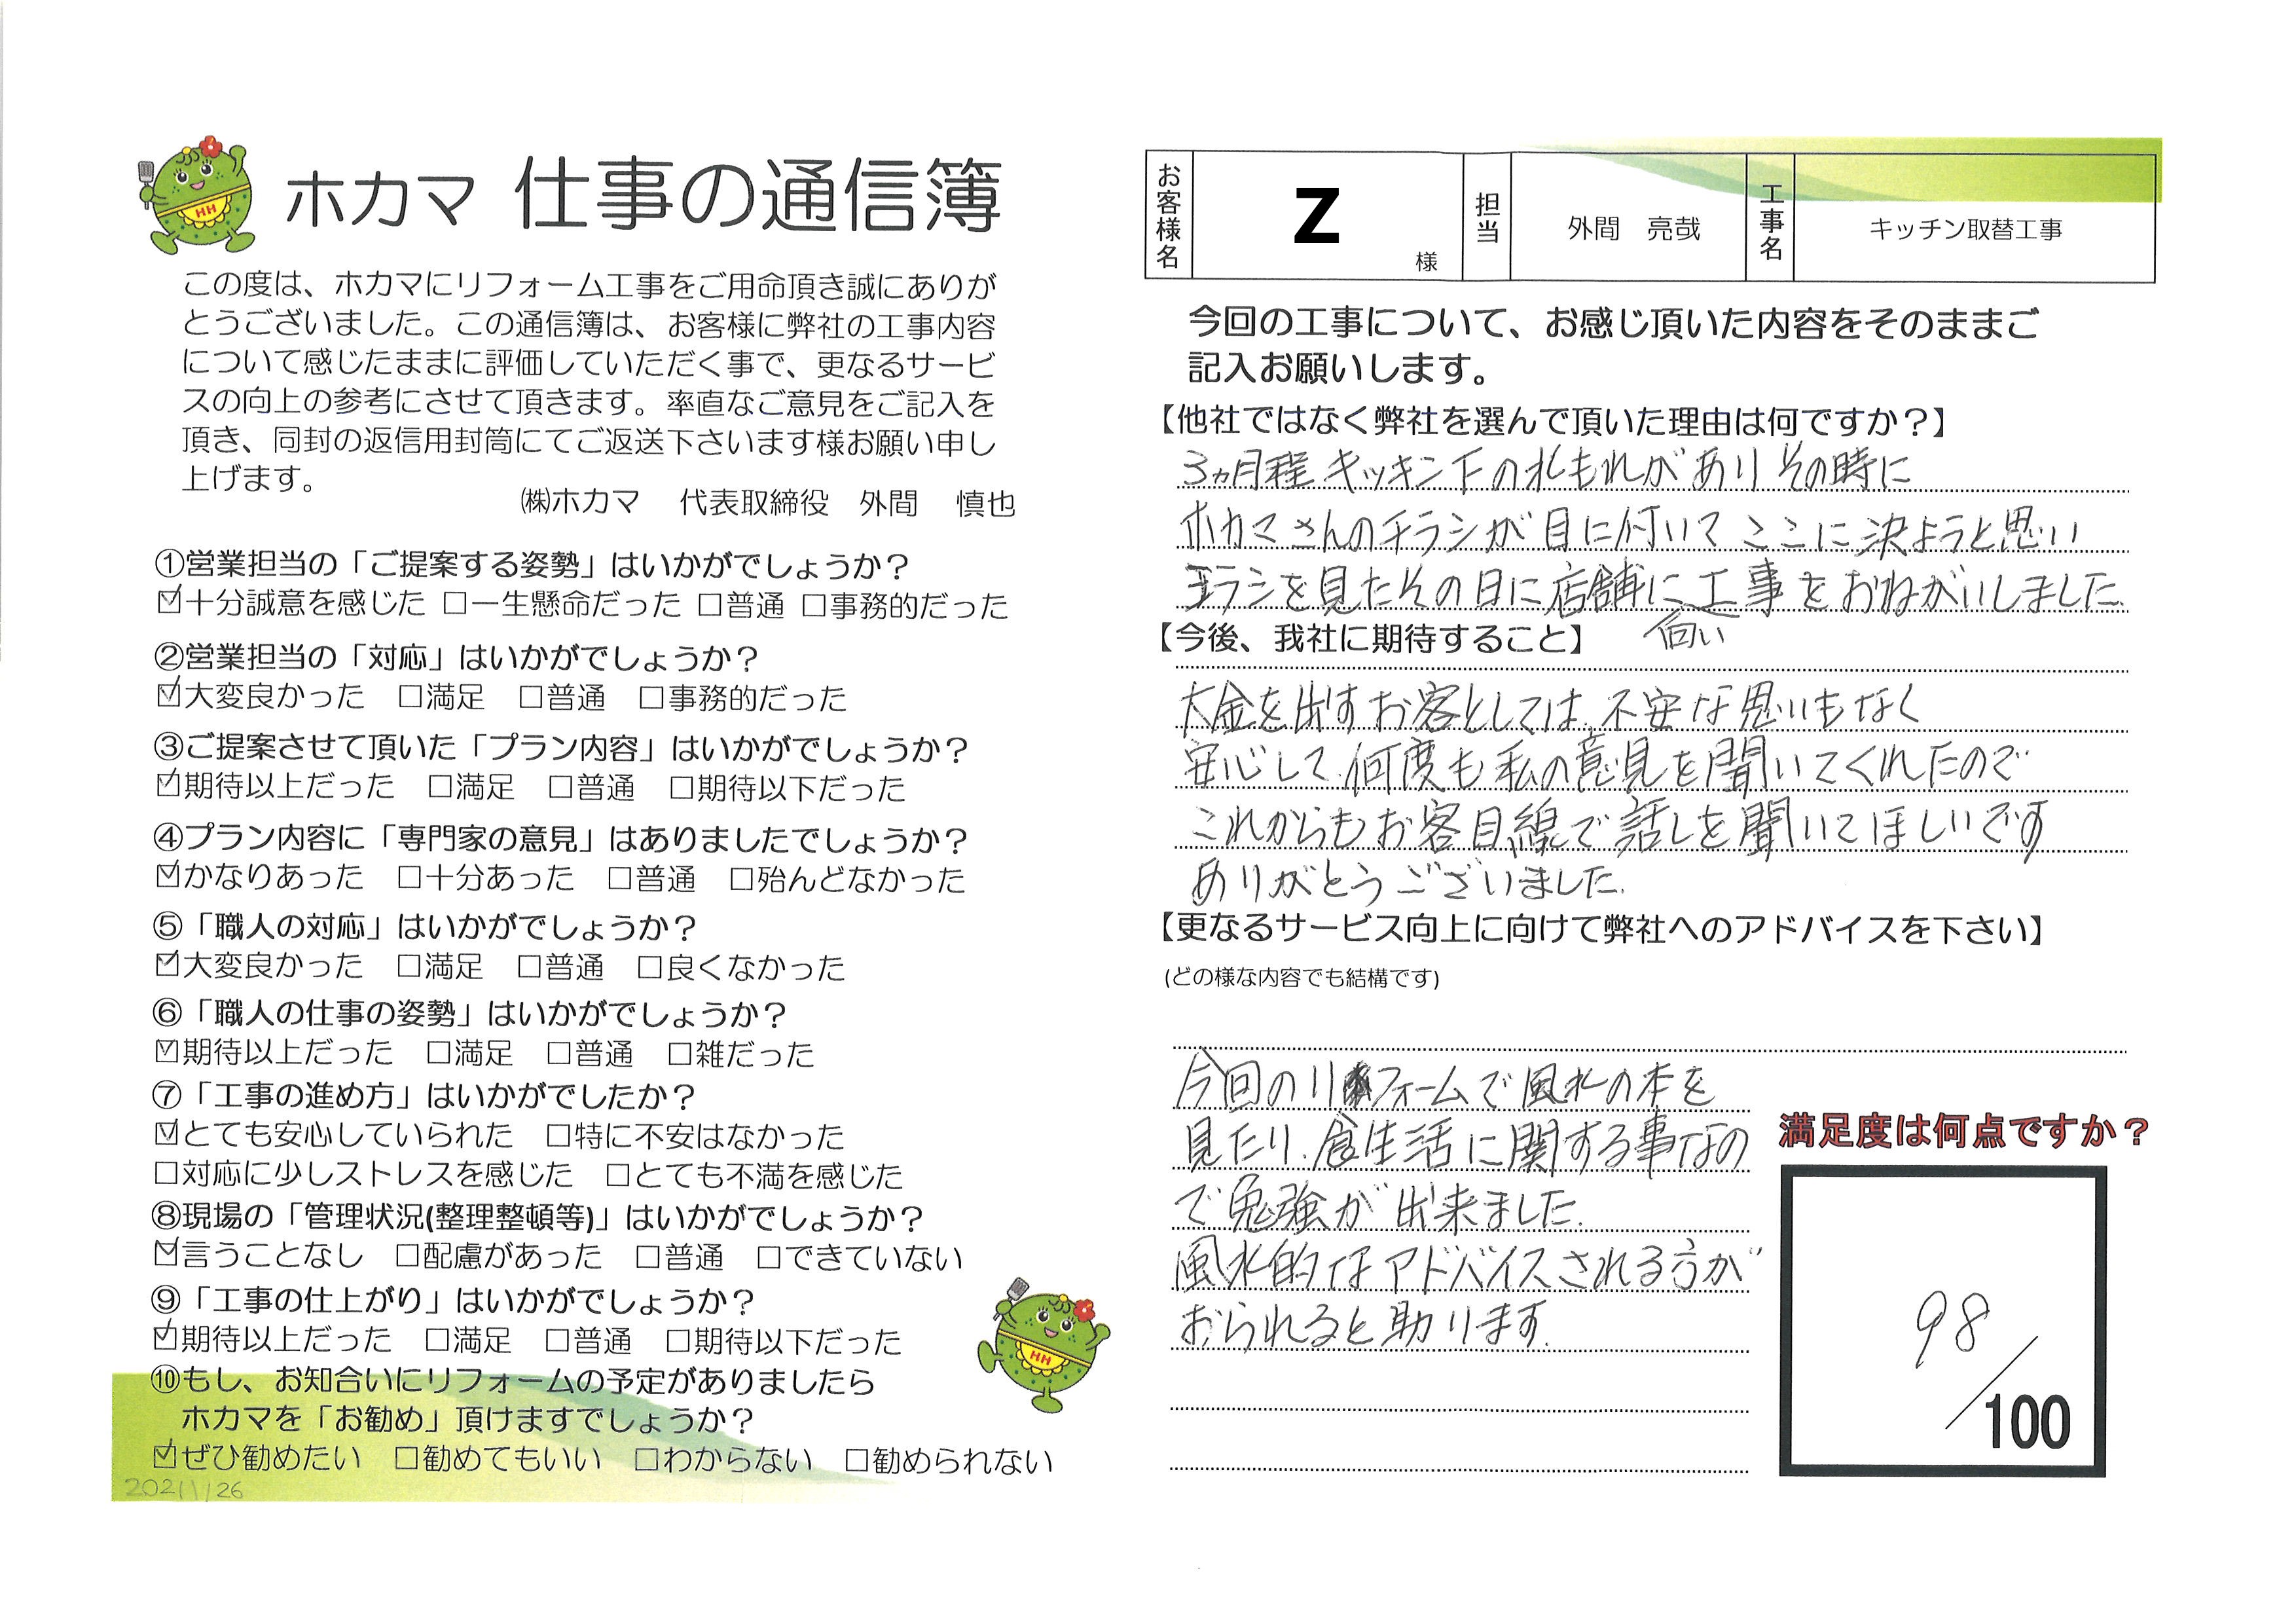 ホカマ 仕事の通信簿
この度は、ホカマにリフォーム工事をご用命頂き誠にありが
とうございました。この通信簿は、お客様に弊社の工事内容
について感じたままに評価していただく事で、更なるサービ
スの向上の参考にさせて頂きます。率直なご意見をご記入を
頂き、同封の返信用封筒にてご返送下さいます様お願い申し
上げます。
㈱ホカマ 代表取締役 外間 慎也
①営業担当の「ご提案する姿勢」はいかがでしょうか？
☑十分誠意を感じた □一生懸命だった □普通 □事務的だった
②営業担当の「対応」はいかがでしょうか？
☑大変良かった □満足 □普通 □事務的だった
③ご提案させて頂いた「プラン内容」はいかがでしょうか？
☑期待以上だった □満足 □普通 □期待以下だった
④プラン内容に「専門家の意見」はありましたでしょうか？
☑かなりあった □十分あった □普通 □殆んどなかった
⑤「職人の対応」はいかがでしょうか？
☑大変良かった □満足 □普通 □良くなかった
⑥「職人の仕事の姿勢」はいかがでしょうか？
☑期待以上だった □満足 □普通 □雑だった
⑦「工事の進め方」はいかがでしたか？
☑とても安心していられた □特に不安はなかった
□対応に少しストレスを感じた □とても不満を感じた
⑧現場の「管理状況(整理整頓等)」はいかがでしょうか？
☑言うことなし □配慮があった □普通 □できていない
⑨「工事の仕上がり」はいかがでしょうか？
☑期待以上だった □満足 □普通 □期待以下だった
⑩もし、お知合いにリフォームの予定がありましたら
ホカマを「お勧め」頂けますでしょうか？
☑ぜひ勧めたい □勧めてもいい □わからない □勧められない
2021/1/26
お客様名 Z 様 担当 外間 亮哉 工事名 キッチン取替工事
今回の工事について、お感じ頂いた内容をそのままご
記入お願いします。
【他社ではなく弊社を選んで頂いた理由は何ですか？】
3ヵ月程 キッキン下の水もれがあり その時に
ホカマさんのチラシが目に付いて ここに決ようと思い
チラシを見たその日に店舗に工事をおねがいしました.
伺い
【今後、我社に期待すること】
大金を出すお客としては、不安な思いもなく
安心して、何度も私の意見を聞いてくれたので
これからもお客目線で話しを聞いてほしいです
ありがとうございました.
【更なるサービス向上に向けて弊社へのアドバイスを下さい】
(どの様な内容でも結構です)
今回のリフォームで風水の本を
見たり、食生活に関する事なの
で勉強が出来ました.
風水的なアドバイスされる方が
おられると助ります.
満足度は何点ですか？
98/100
HH
HH